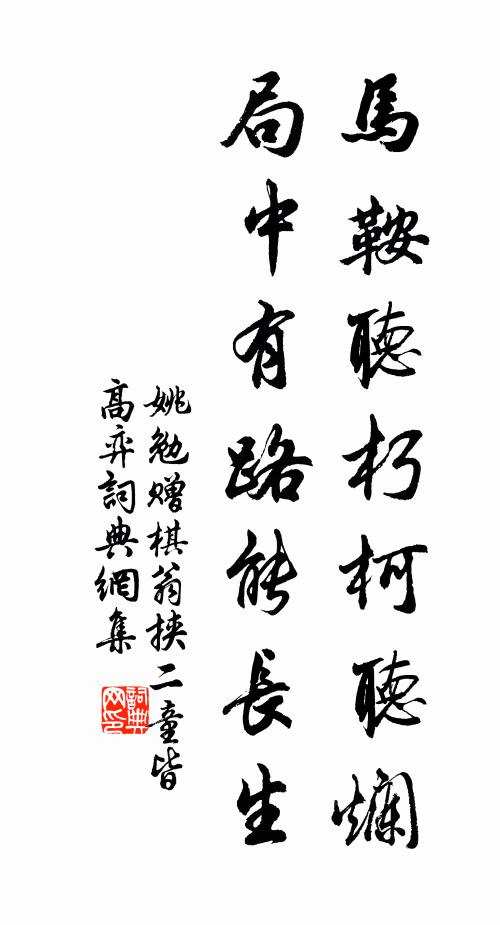 馬鞍聽朽柯聽爛
局中有路能長生
姚勉贈棋翁挾二童皆
高弈詞典網集
詞典
网印